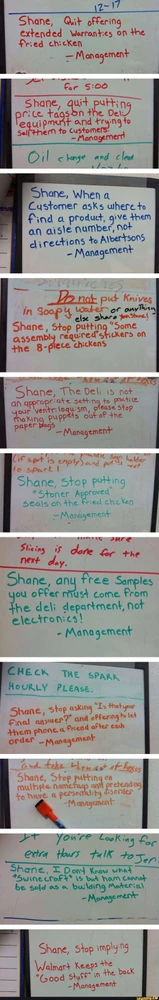 12-17
Shane, Quit offering
extended warranties on the
fried chicken
- Management
for 5:00
Shane, quit putting
price tags on the Deli
equipment and trying to
sell them to customers.
- Management
Oil change and clean
Shane, When a
Customer asks where to
find a product, give them
an aisle number, not
directions to Albertsons
- Management
Do not put Knives
in soapy water or anything
else sharp
Shane, Stop putting "Some
assembly required" stickers on
the 8-piece chickens
Shane, The Deli is not
an appropriate setting to practice
your ventriloquism, please stop
making puppets out of the
paper bags
- Management
Shane, Stop putting
"Stoner Approved"
seals on the fried chicken
- Management
Slicing is done for the
next day.
Shane, any free Samples
you offer must come from
the deli department, not
electronics!
- Management
CHECK THE SPARK
HOURLY PLEASE.
Shane, Stop asking "Is that your
final answer?" and offering to let
them phone a friend after each
order
- Management
Shane, Stop putting on
multiple nametags and pretending
to have a personality disorder
- Management
If You're Looking for
extra hours talk to Jeri
Shane, I Don't Know what
"Swinecraft" is but ham cannot
be sold as a building material
- Management
Shane, Stop implying
Walmart Keeps the
"Good Stuff" in the back
- Management